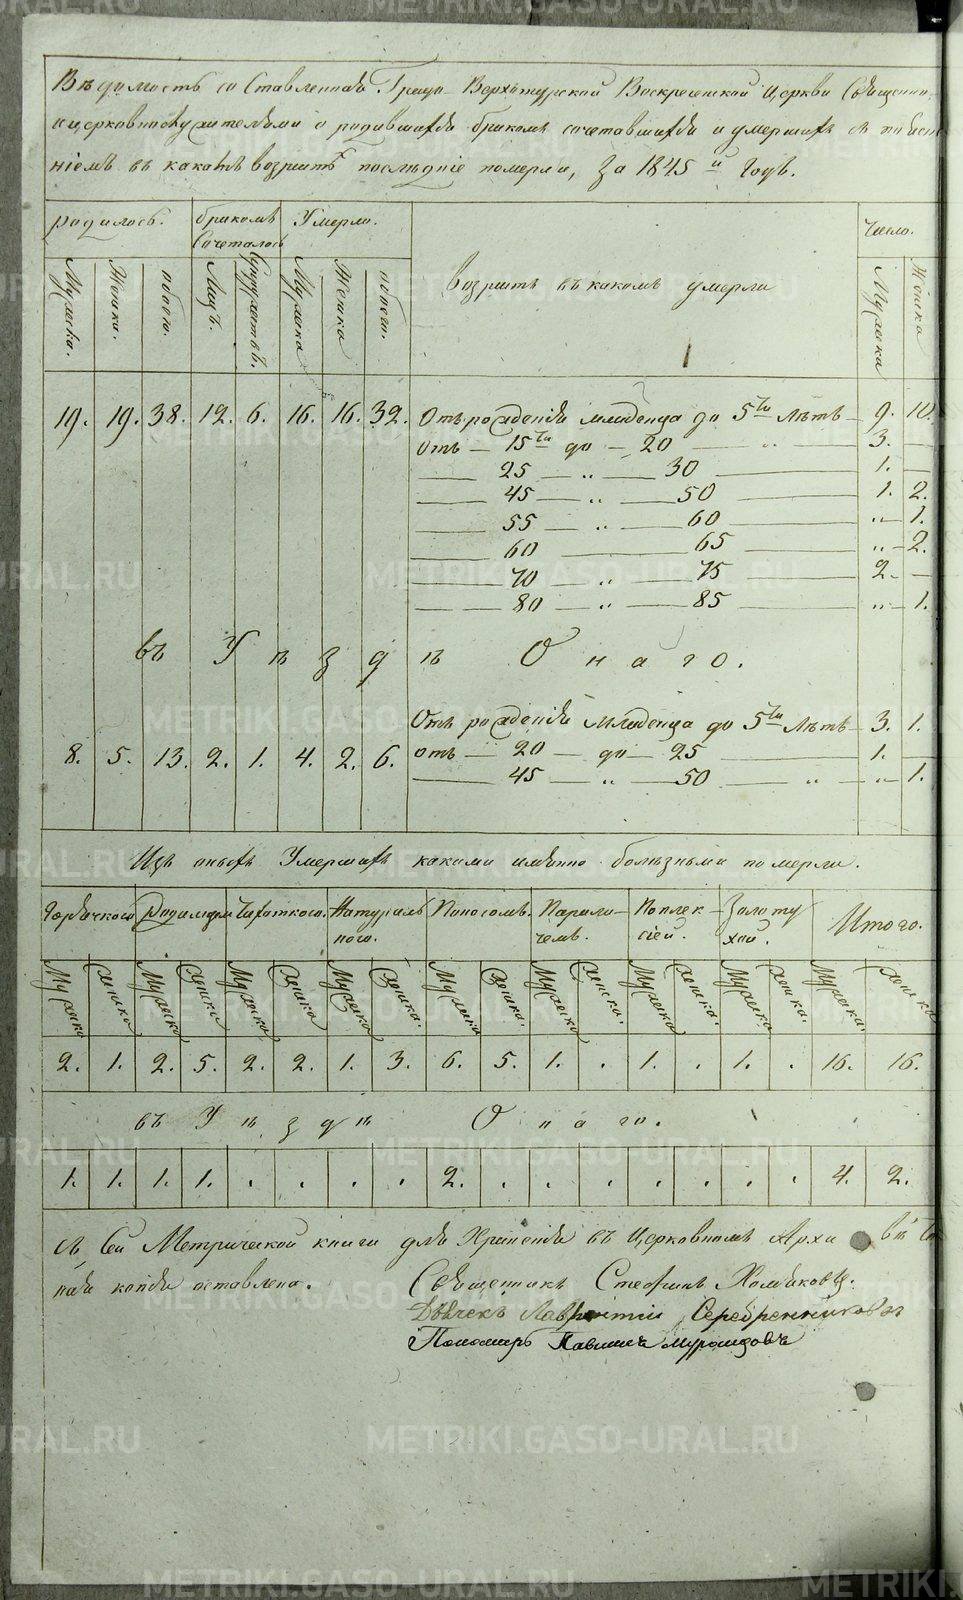 Вѣдомость со Ставленная Градо Верхотурской Воскресенской Церкви Священно
и церковнослужителями о родившихся бракомъ сочетавшихся и умершихъ съ
ніемъ въ какихъ возрастѣ послѣдніе померли, За 1845 й Годъ.
родилось. бракомъ Сочетались Умерло. Число.
Мужеска. Женска. обоего. Лицъ. Супружествъ. Мужеска Женска обоего. возрастъ въ какомъ умерли Мужеска Женска
19. 19. 38. 12. 6. 16. 16. 32. Отъ рожденія младенца до 5ти Лѣтъ 9. 10.
Отъ 15ти до 20 „ 3.
25 „ 30 1.
45 „ 50 1. 2.
55 „ 60 „ 1.
60 65 „ 2.
70 „ 75 2.
80 „ 85 „ 1.
въ Уѣздѣ Онаго.
Отъ рожденія младенца до 5ти Лѣтъ 3. 1.
8. 5. 13. 2. 1. 4. 2. 6. отъ 20 до 25 1.
45 „ 50 „ „ 1.
Изъ оныхъ Умершихъ какими именно болѣзньми померли.
Горячкою Родимцемъ Чахоткою. Натуральною. Поносомъ. Параличемъ. Поплексіей. Золотухой. Итого.
Мужеска Женска Мужеска Женска Мужеска Женска Мужеска Женска. Мужеска Женска. Мужеска Женска. Мужеска Женска. Мужеска Женска. Мужеска. Женска
2. 1. 2. 5. 2. 2. 1. 3. 6. 5. 1. . 1. . 1. . 16. 16.
въ Уѣздѣ Онаго.
1. 1. 1. 1. . . . . 2. . . . . . . . 4. 2.
Съ Сей Метрической книги для Храненія въ Церковномъ Архи вѣ
ная копія оставлена. Священникъ Стефанъ Хомяковъ.
Дьячекъ Лаврентій Серебренниковъ
Пономарь Павелъ Мурзинцовъ
METRIKI.GASO-URAL.RU